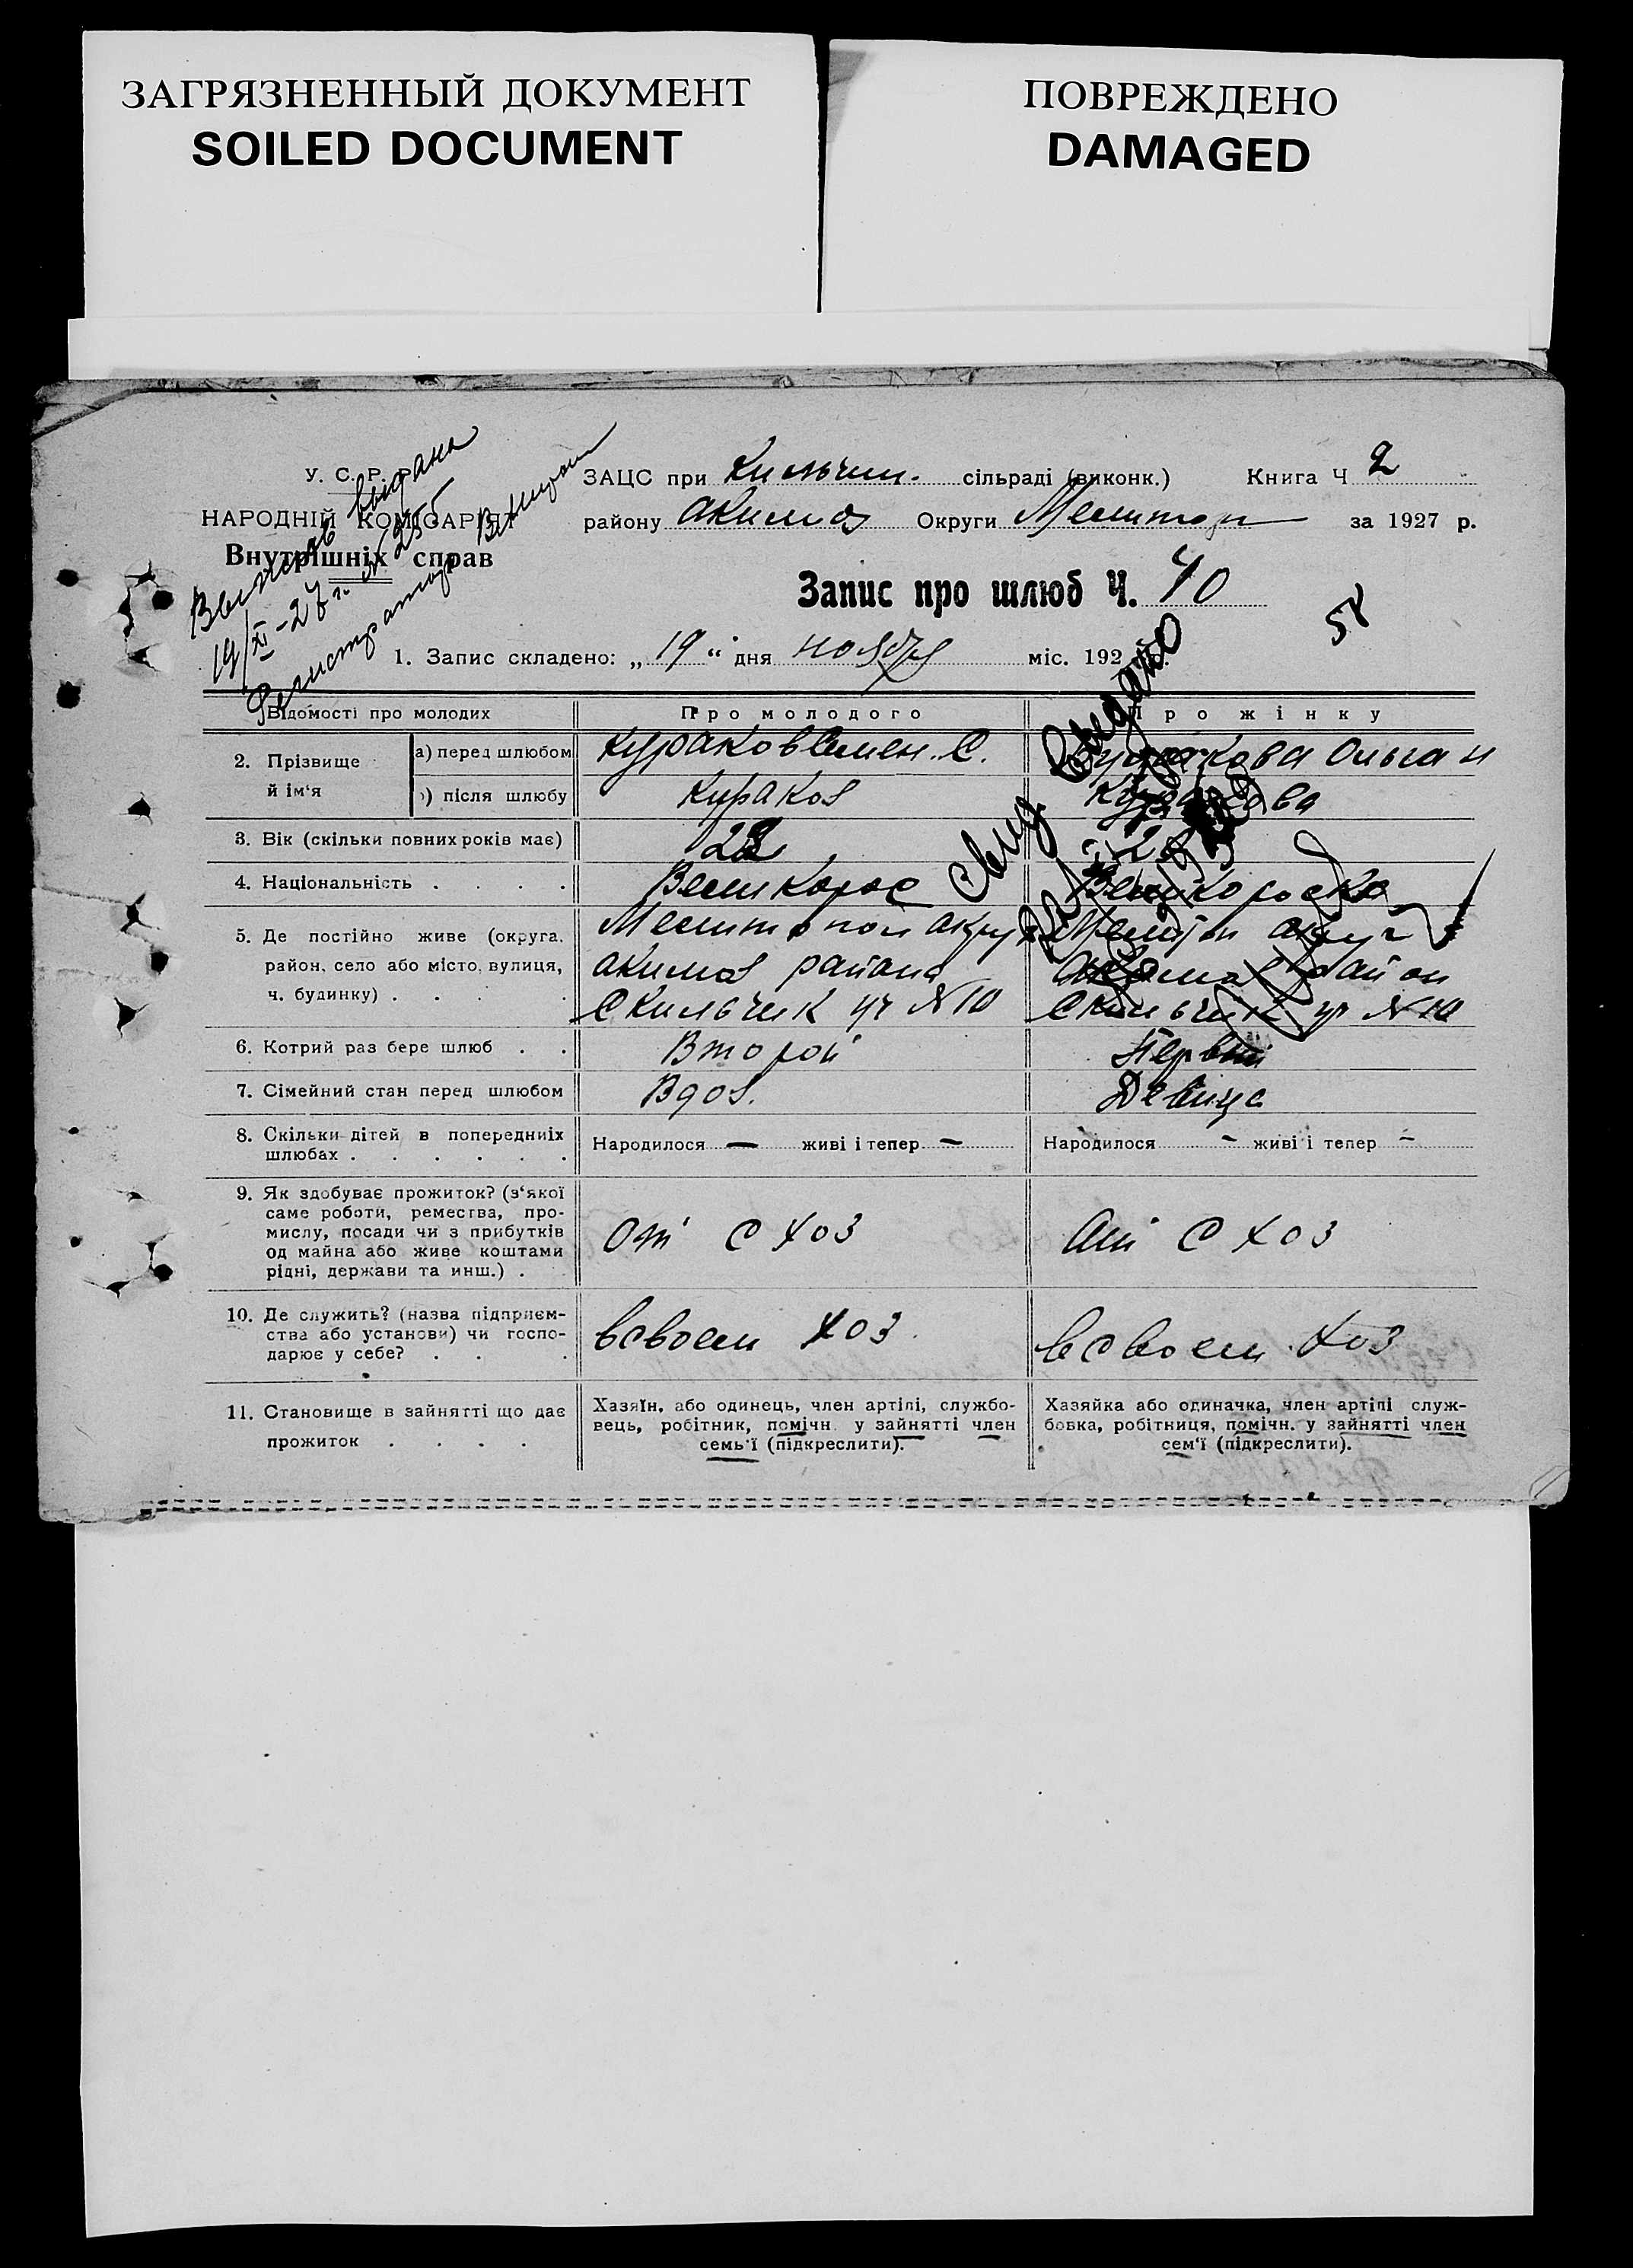 ЗАГРЯЗНЕННЫЙ ДОКУМЕНТ
SOILED DOCUMENT
ПОВРЕЖДЕНО
DAMAGED
У. С. Р. Р.
НАРОДНІЙ КОМІСАРІЯТ
Внутрішніх справ
Выпись выдана
19/XI-27 г. № 255
Регистратор
ЗАЦС при Кильчик. сільраді (виконк.) Книга Ч 2
району Акимов Округи Мелитоп за 1927 р.
Запис про шлюб Ч. 40
58
1. Запис складено: „ 19 “ дня ноября міс. 192 р.
Відомості про молодих
Про молодого
Про жінку
2. Прізвище й ім‘я
а) перед шлюбом
Кураков Семен. С.
Ольга И
б) після шлюбу
Кураков
Куракова
3. Вік (скільки повних років має)
4. Національність . . . .
Великорос
Великороска
Свид. выдано
5. Де постійно живе (округа,
район, село або місто, вулиця,
ч. будинку) . . . .
Мелитопол округ
Акимов района
С Кильчик уч №10
Мелитоп округ
Акимов район
С Кильчик уч №10
6. Котрий раз бере шлюб . .
Второй
Первый
7. Сімейний стан перед шлюбом
Вдов.
Девица
8. Скільки дітей в попередниіх
шлюбах . . . . . .
Народилося — живі і тепер —
Народилося - живі і тепер -
9. Як здобуває прожиток? (з‘якої
саме роботи, ремества, про-
мислу, посади чи з прибутків
од майна або живе коштами
рідні, держави та инш.) .
От С Хоз
От С Хоз
10. Де служить? (назва підприєм-
ства або установи) чи госпо-
дарює у себе? . . .
в своем хоз.
в своем хоз
11. Становище в зайнятті що дає
прожиток . . . .
Хазяїн, або одинець, член артілі, службо-
вець, робітник, помічн. у зайнятті член
семь‘ї (підкреслити).
Хазяйка або одиначка, член артілі служ-
бовка, робітниця, помічн. у зайнятті член
сем‘ї (підкреслити).